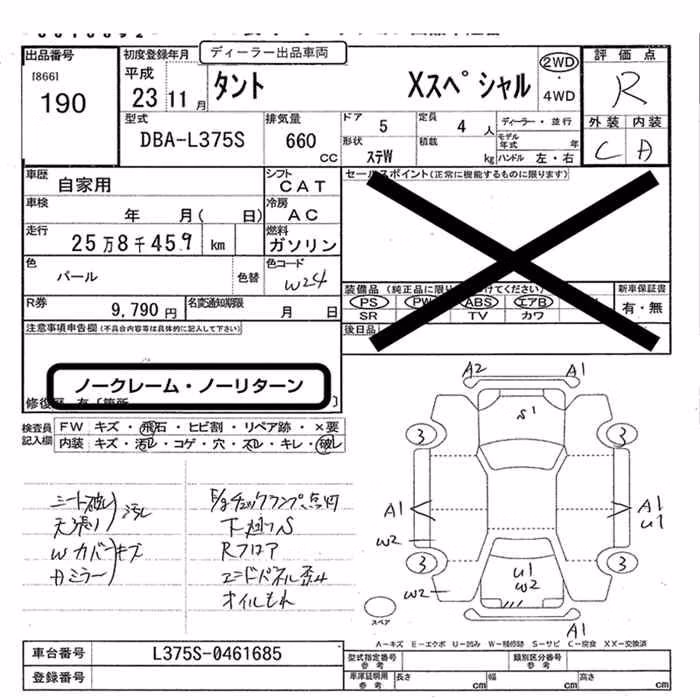 出品番号
[866]
190
初度登録年月
ディーラー出品車両
平成
23 11 月
タント
Xスペシャル
2WD
・
4WD
評価点
R
外装 内装
C A
型式
DBA-L375S
排気量
660
CC
ドア 5
定員 4 人
ディーラー・並行
モデル年式 年
形状 ステW
積載 kg
ハンドル 左・右
車歴
自家用
シフト
CAT
車検
年 月( 日)
冷房
AC
走行
25万8千459 km
燃料
ガソリン
色
パール
色替
色コード
W24
R券
9,790 円
名変通知期限
月 日
セールスポイント(正常に機能するものに限ります)
装備品
PS PW ABS エアB
SR TV カワ
新車保証書
有・無
後日品
注意事項申告欄(不具合内容等は具体的に記入して下さい)
ノークレーム・ノーリターン
検査員記入欄
FW キズ・飛石・ヒビ割・リペア跡・×要
内装 キズ・汚レ・コゲ・穴・スレ・キレ・破レ
シート破レ
天張り
汚レ
Wカバー
Aミラー
キズ
チェックランプ点灯
下廻りS
Rフロア
エンドパネル歪み
オイルもれ
A2 A1
S1
3 3
A1 A1
U1
W2
3 3
W2
U1
W2
A1
スペア
A-キズ E-エクボ U-凹み W-補修跡 S-サビ C-腐食 XX-交換済
車台番号
L375S-0461685
登録番号
型式指定番号
参考
類別区分番号
参考
車庫証明用
参考
長さ cm
幅 cm
高さ cm